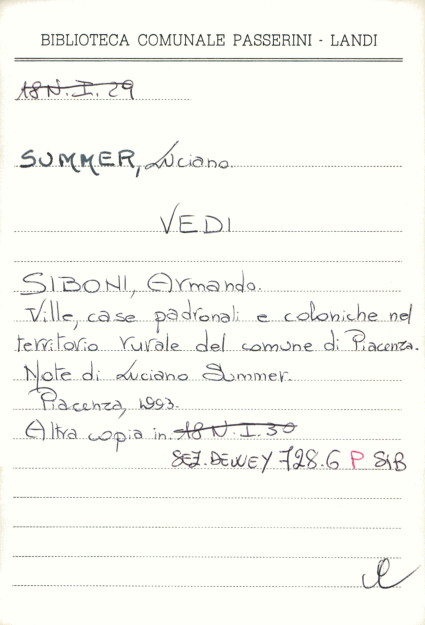 BIBLIOTECA COMUNALE PASSERINI - LANDI
18 N. I. 29
SUMMER, Luciano
VEDI
SIBONI, Armando.
Ville, case padronali e coloniche nel
territorio rurale del comune di Piacenza.
Note di Luciano Summer.
Piacenza, 1993.
Altra copia in 18 N. I. 30
SEZ. DEWEY 728.6 P SIB